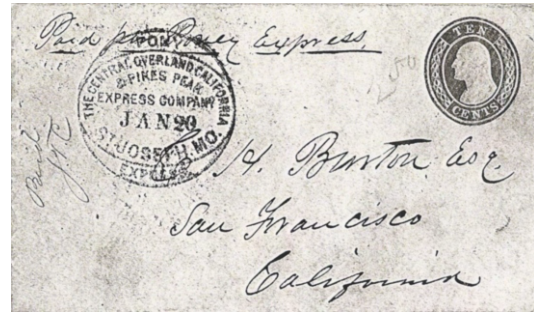 Paid per Pony Express
PONY
THE CENTRAL OVERLAND CALIFORNIA
& PIKES PEAK
EXPRESS COMPANY
JAN 20
ST JOSEPH, MO.
EXPRESS
TEN
CENTS
Paid
H. Burton Esq.
San Francisco
California